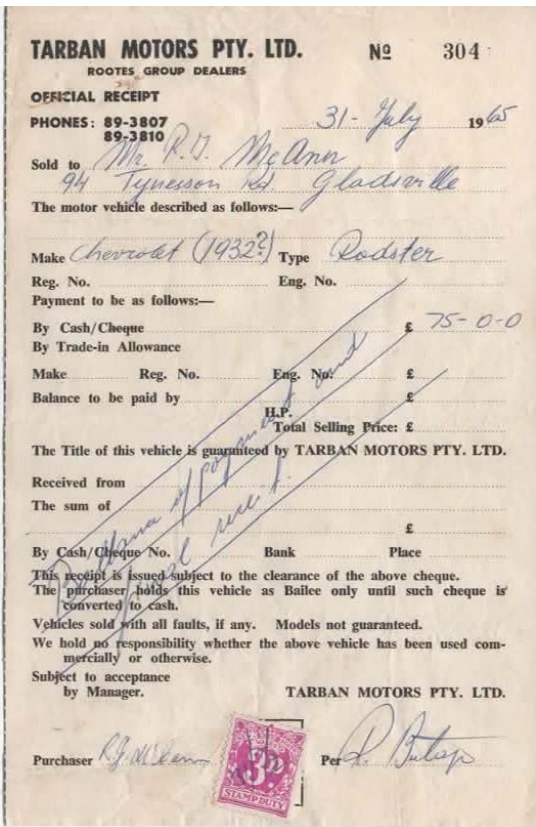 TARBAN MOTORS PTY. LTD. Nº 304
ROOTES GROUP DEALERS
OFFICIAL RECEIPT
PHONES: 89-3807
89-3810
31- July 1965
Sold to Mr. R.J. McAnn
94 Tynesson Rd. Gladsville
The motor vehicle described as follows:—
Make Chevrolet (1932?) Type Rodster
Reg. No. Eng. No.
Payment to be as follows:—
By Cash/Cheque £ 75-0-0
By Trade-in Allowance
Make Reg. No. Eng. No. £
Balance to be paid by £
H.P.
Total Selling Price: £
The Title of this vehicle is guaranteed by TARBAN MOTORS PTY. LTD.
Received from
The sum of
£
By Cash/Cheque No. Bank Place
of payment and
final receit.
This receipt is issued subject to the clearance of the above cheque.
The purchaser holds this vehicle as Bailee only until such cheque is
converted to cash.
Vehicles sold with all faults, if any. Models not guaranteed.
We hold no responsibility whether the above vehicle has been used com-
mercially or otherwise.
Subject to acceptance
by Manager. TARBAN MOTORS PTY. LTD.
Purchaser R.J. McAnn Per
3D
STAMP DUTY